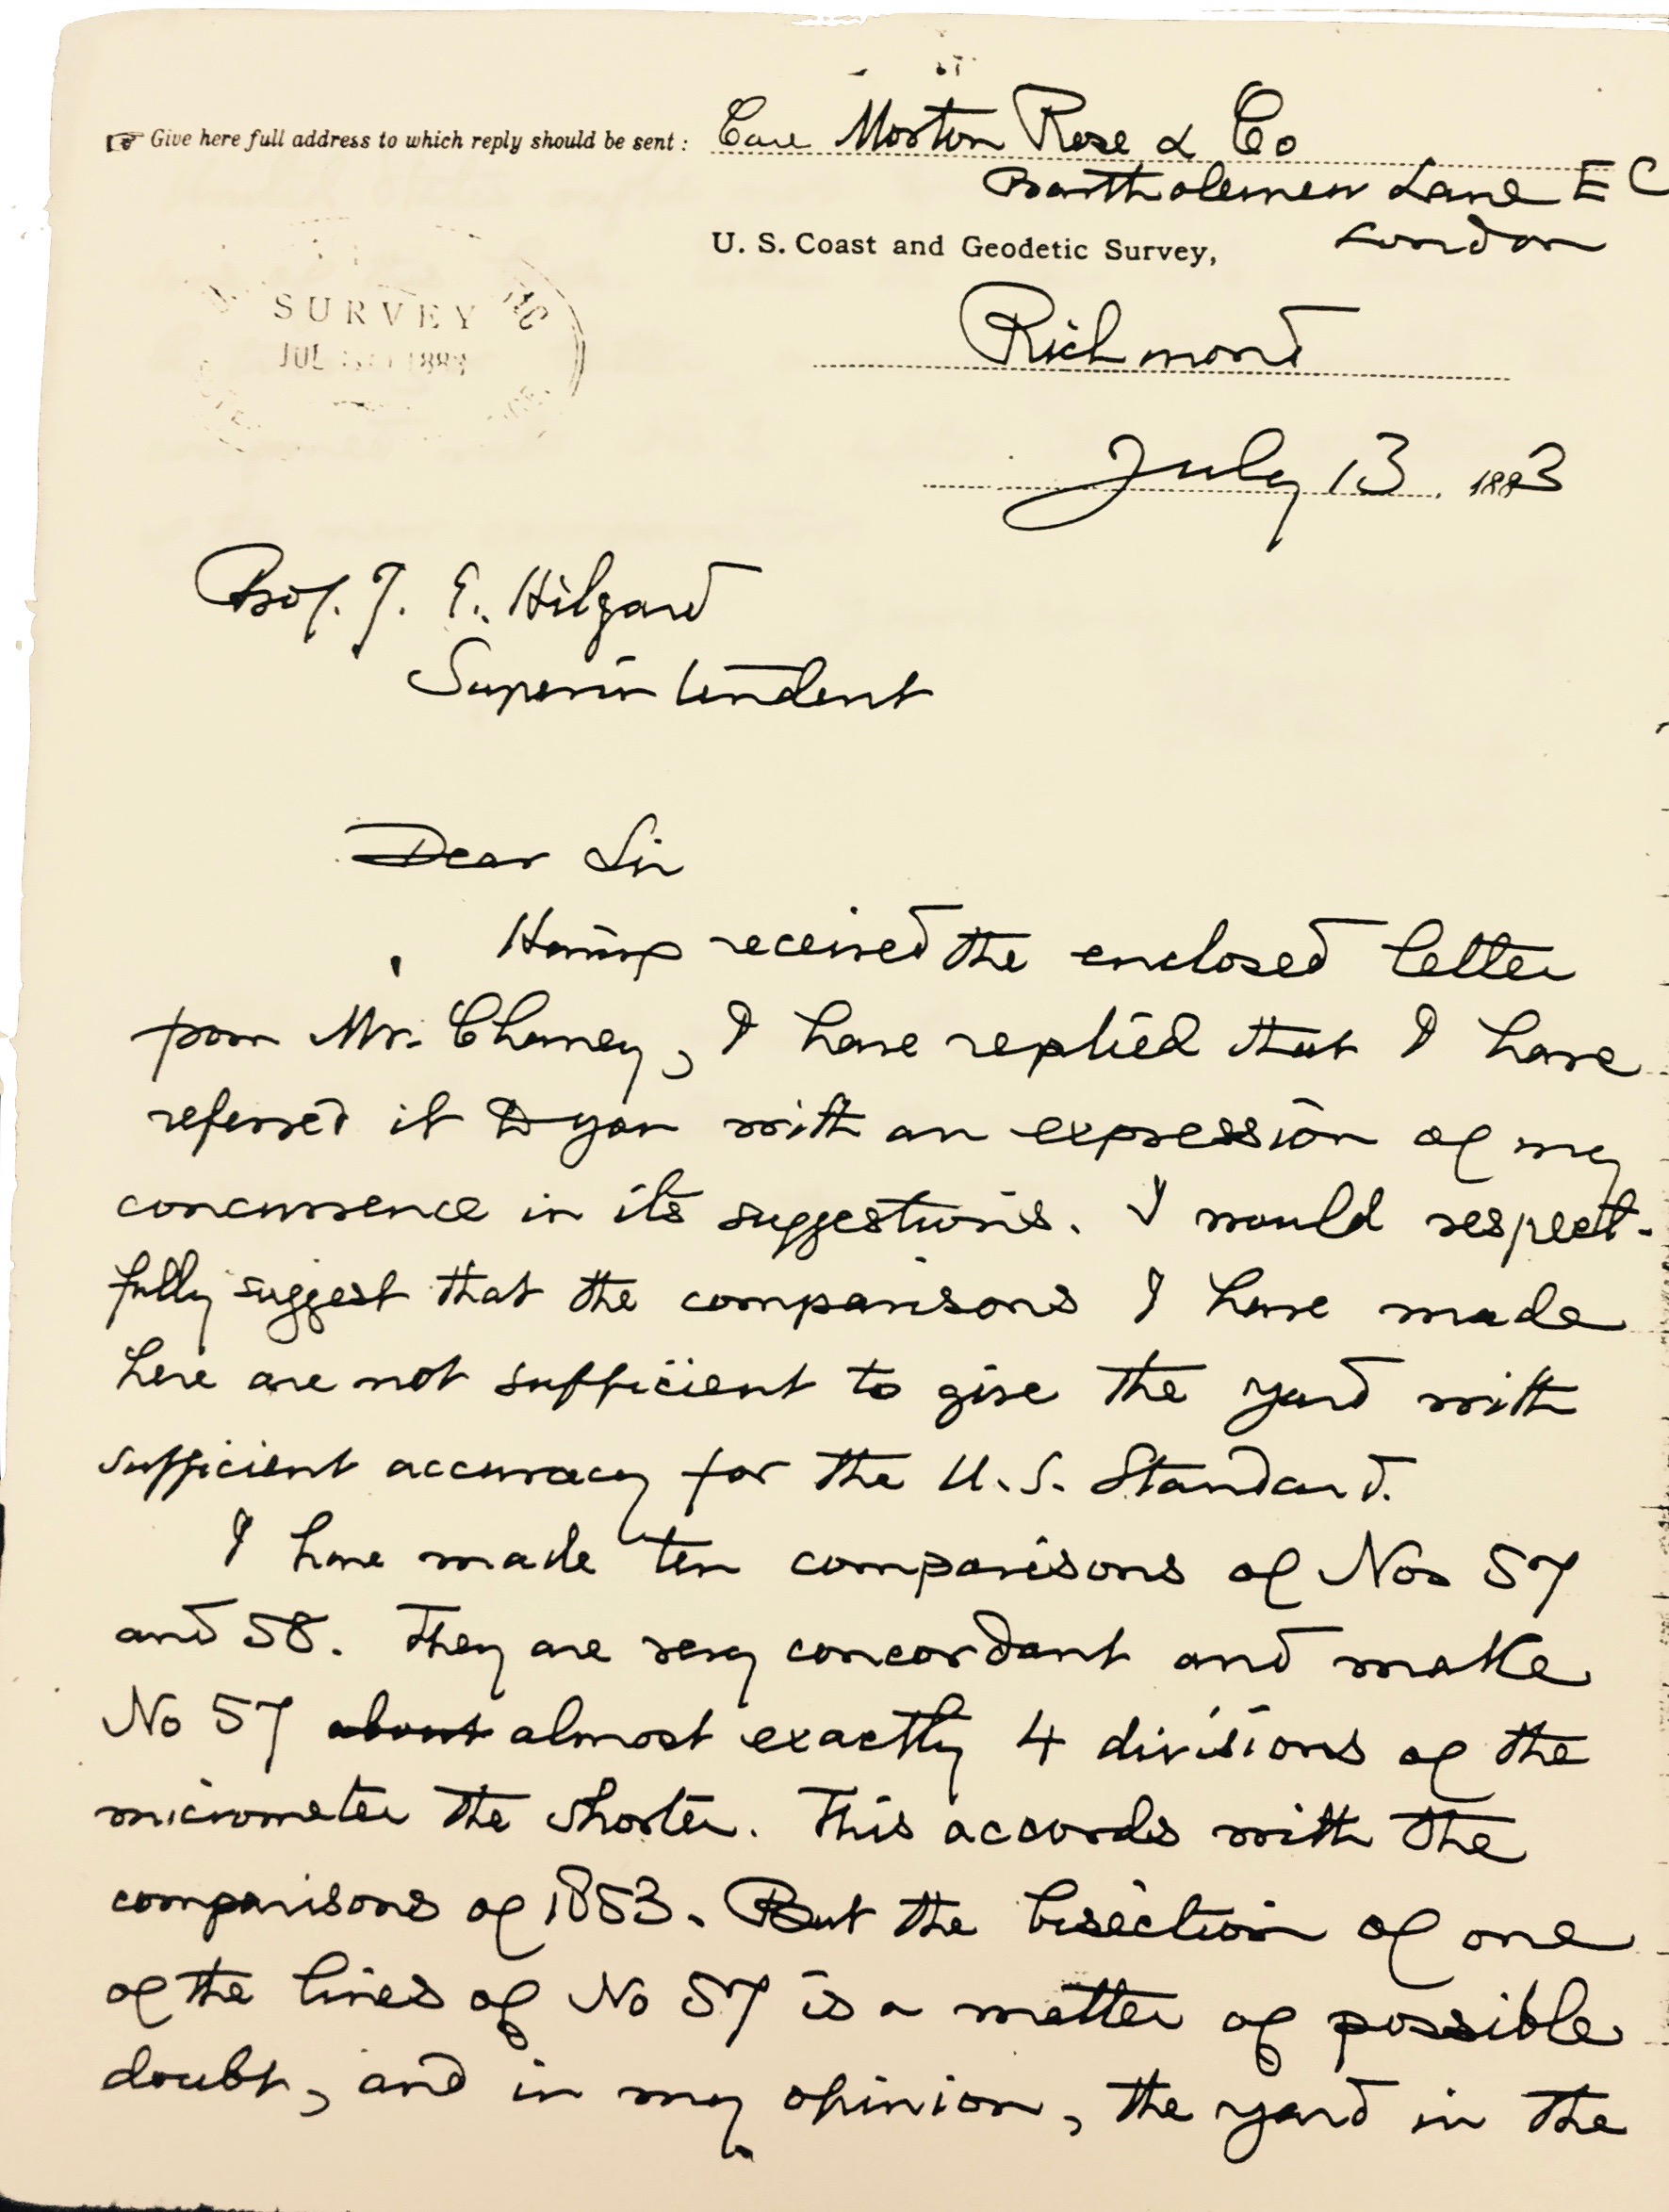 ☞ Give here full address to which reply should be sent: Care Morton Rose & Co
Bartholemew Lane E C
London
U. S. Coast and Geodetic Survey,
SURVEY
JUL 1883
Richmond
July 13. 1883
Prof. J. E. Hilgard
Superintendent
Dear Sir
Having received the enclosed letter
from Mr. Chaney, I have replied that I have
referred it to you with an expression of my
concurrence in its suggestions. I would respect-
fully suggest that the comparisons I have made
here are not sufficient to give the yard with
sufficient accuracy for the U.S. Standard.
I have made ten comparisons of Nos 57
and 58. They are very concordant and make
No 57 about almost exactly 4 divisions of the
micrometer the shorter. This accords with the
comparisons of 1853. But the bisection of one
of the lines of No 57 is a matter of possible
doubt, and in my opinion, the yard in the